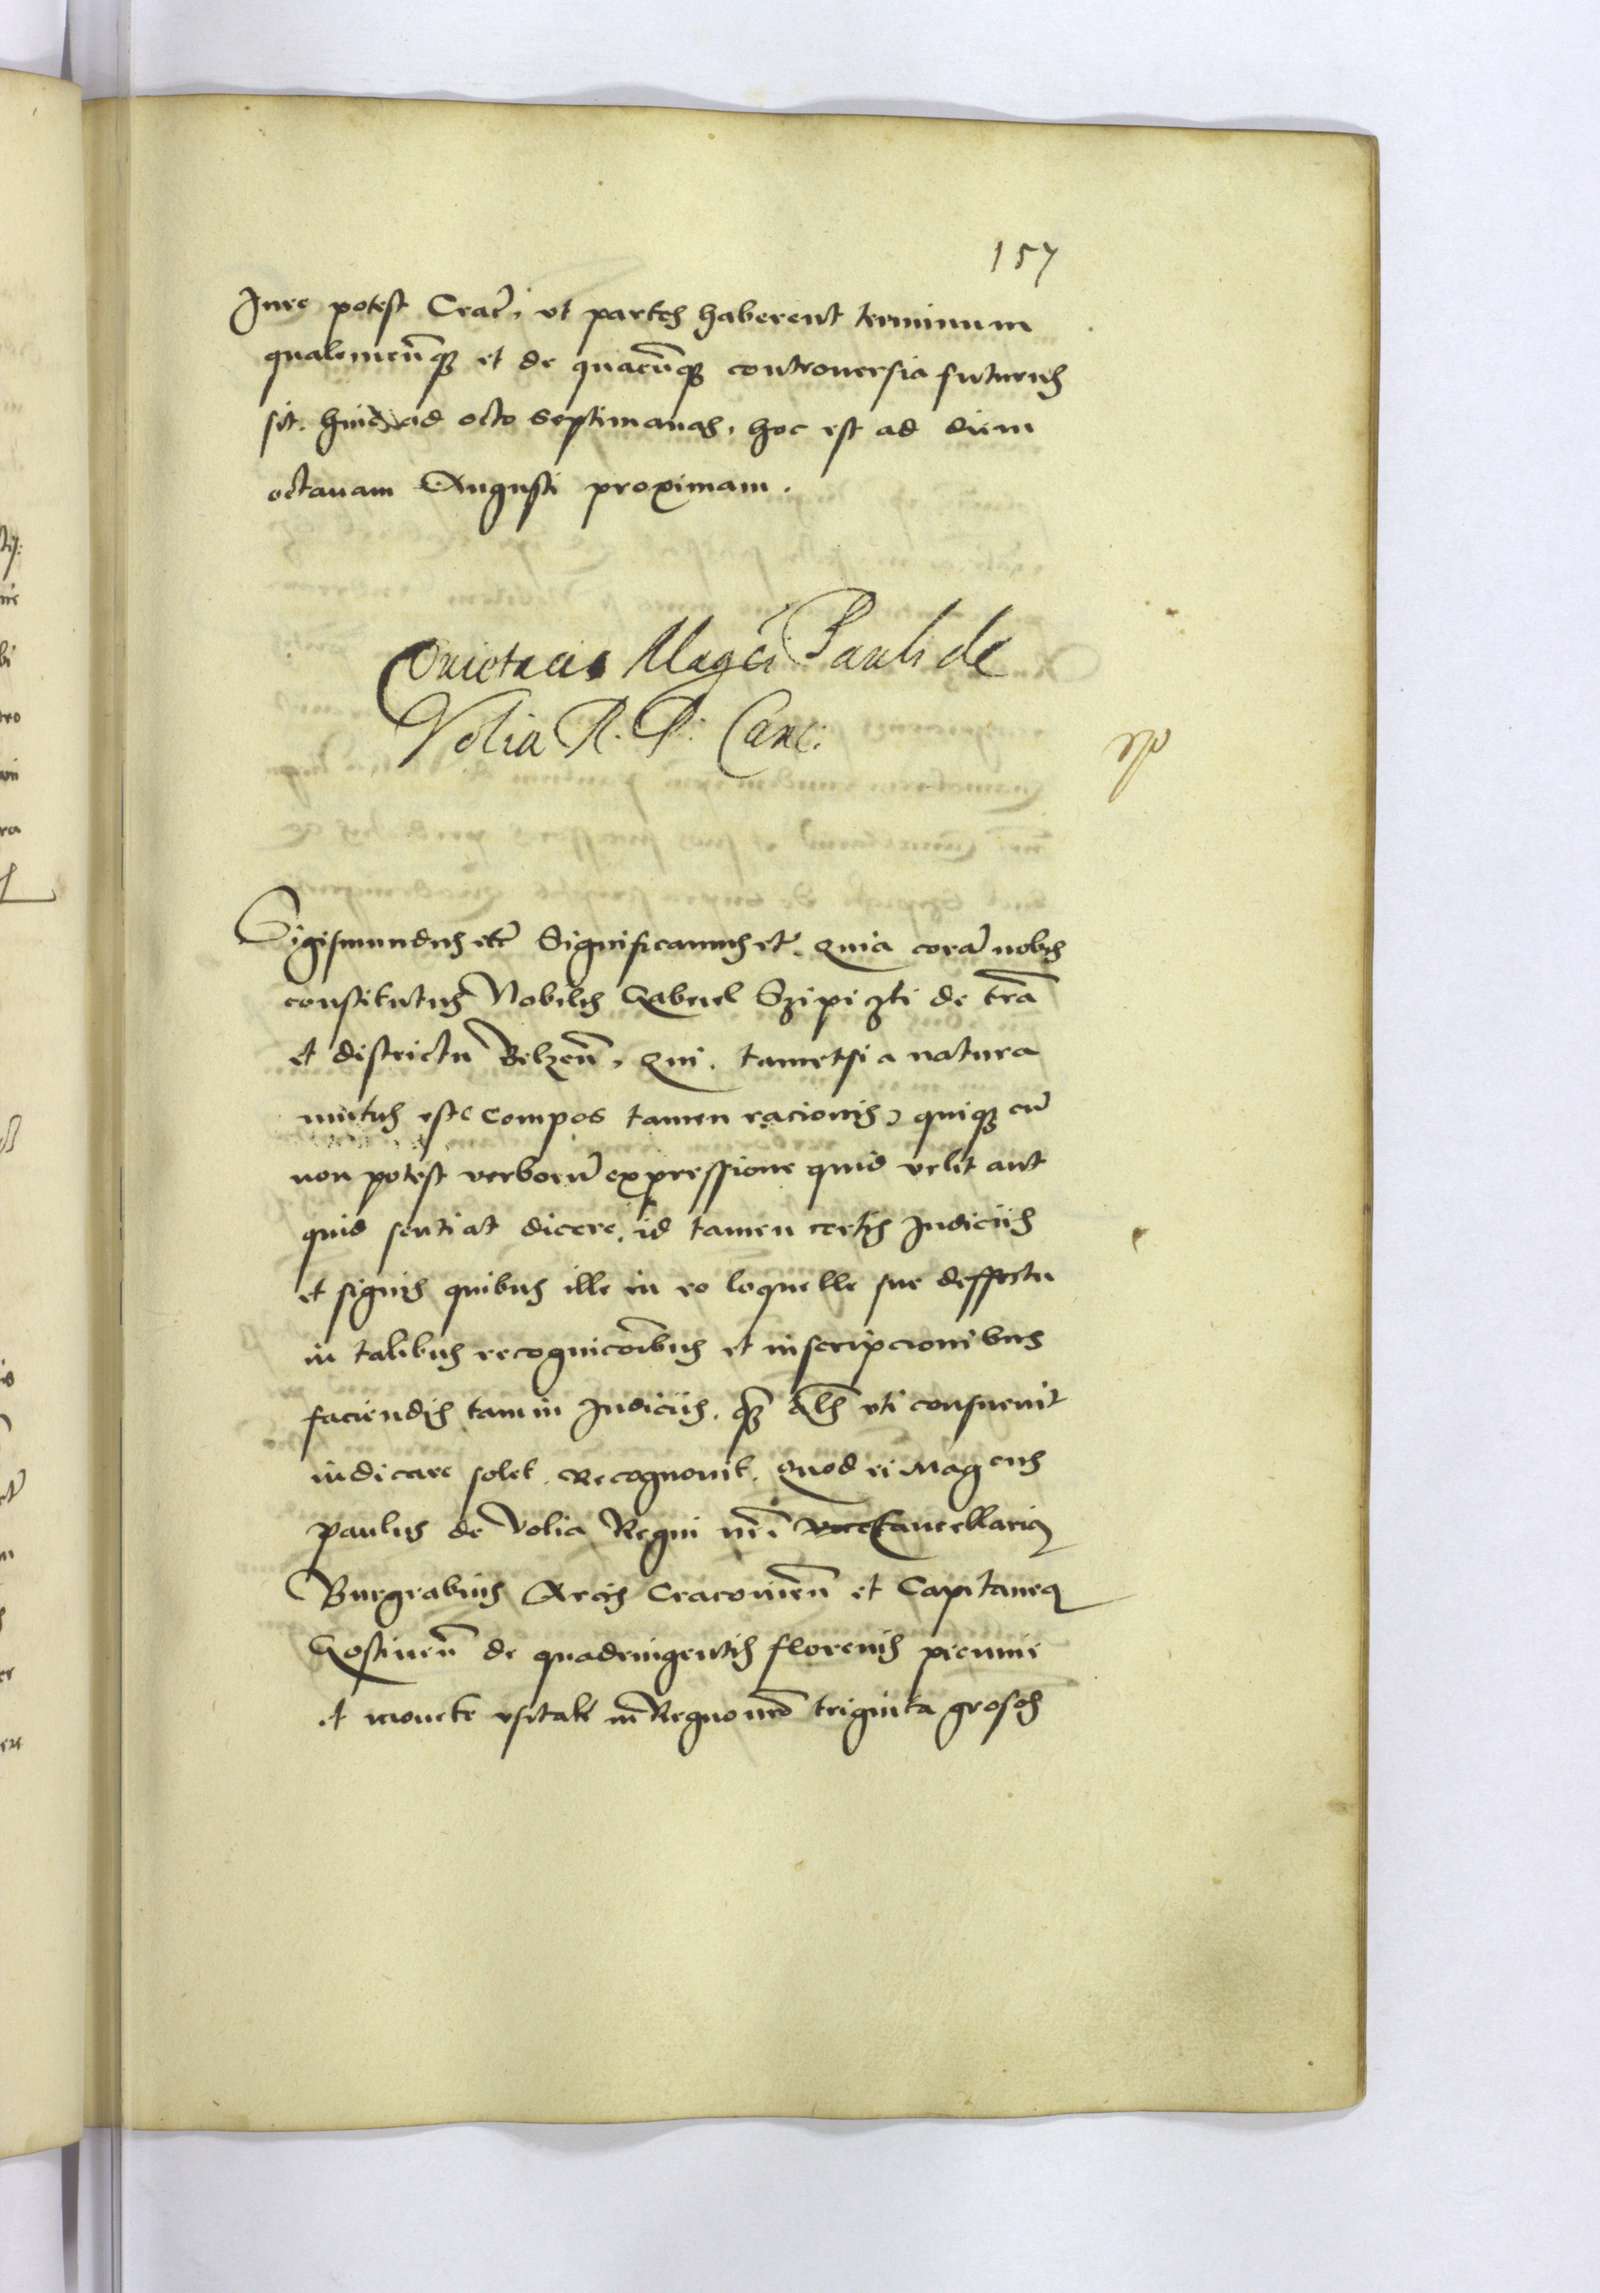 157
Iure potest Crac̃, ut partes haberent terminum
qualemcũq₃ et de quacũq₃ controuersia futurus
sit. hinc ad octo septimanas, hoc est ad diem
octauam Augusti proximam.
Quietacio Magci Pauli de
Volia R. P. Canc:
Sigismundus etc̃ Significamus etc̃. Quia corã nobis
constitutus Nobilis Gabriel de trã
et districtu Belzeñ, qui, tametsi a natura
mutus est compos tamen racionis, quiq₃ cũ
non potest verborũ expressione quid velit aut
quid sentiat dicere, id tamen certis Indiciis
et signis quibus ille in eo loquelle sue deffectu
in talibus recognicõibus et inscripcionibus
faciendis tam in Iudiciis, q̃ als uti consueuit
indicare solet. Recognouit. Quod ei Magcus
Paulus de Volia Regni nri Vicecancellarius
Burgrabius Arcis Cracouieñ et Capitaneus
Gostineñ de quadringentis florenis pecunie
et monete usitate in Regno nro triginta grosos